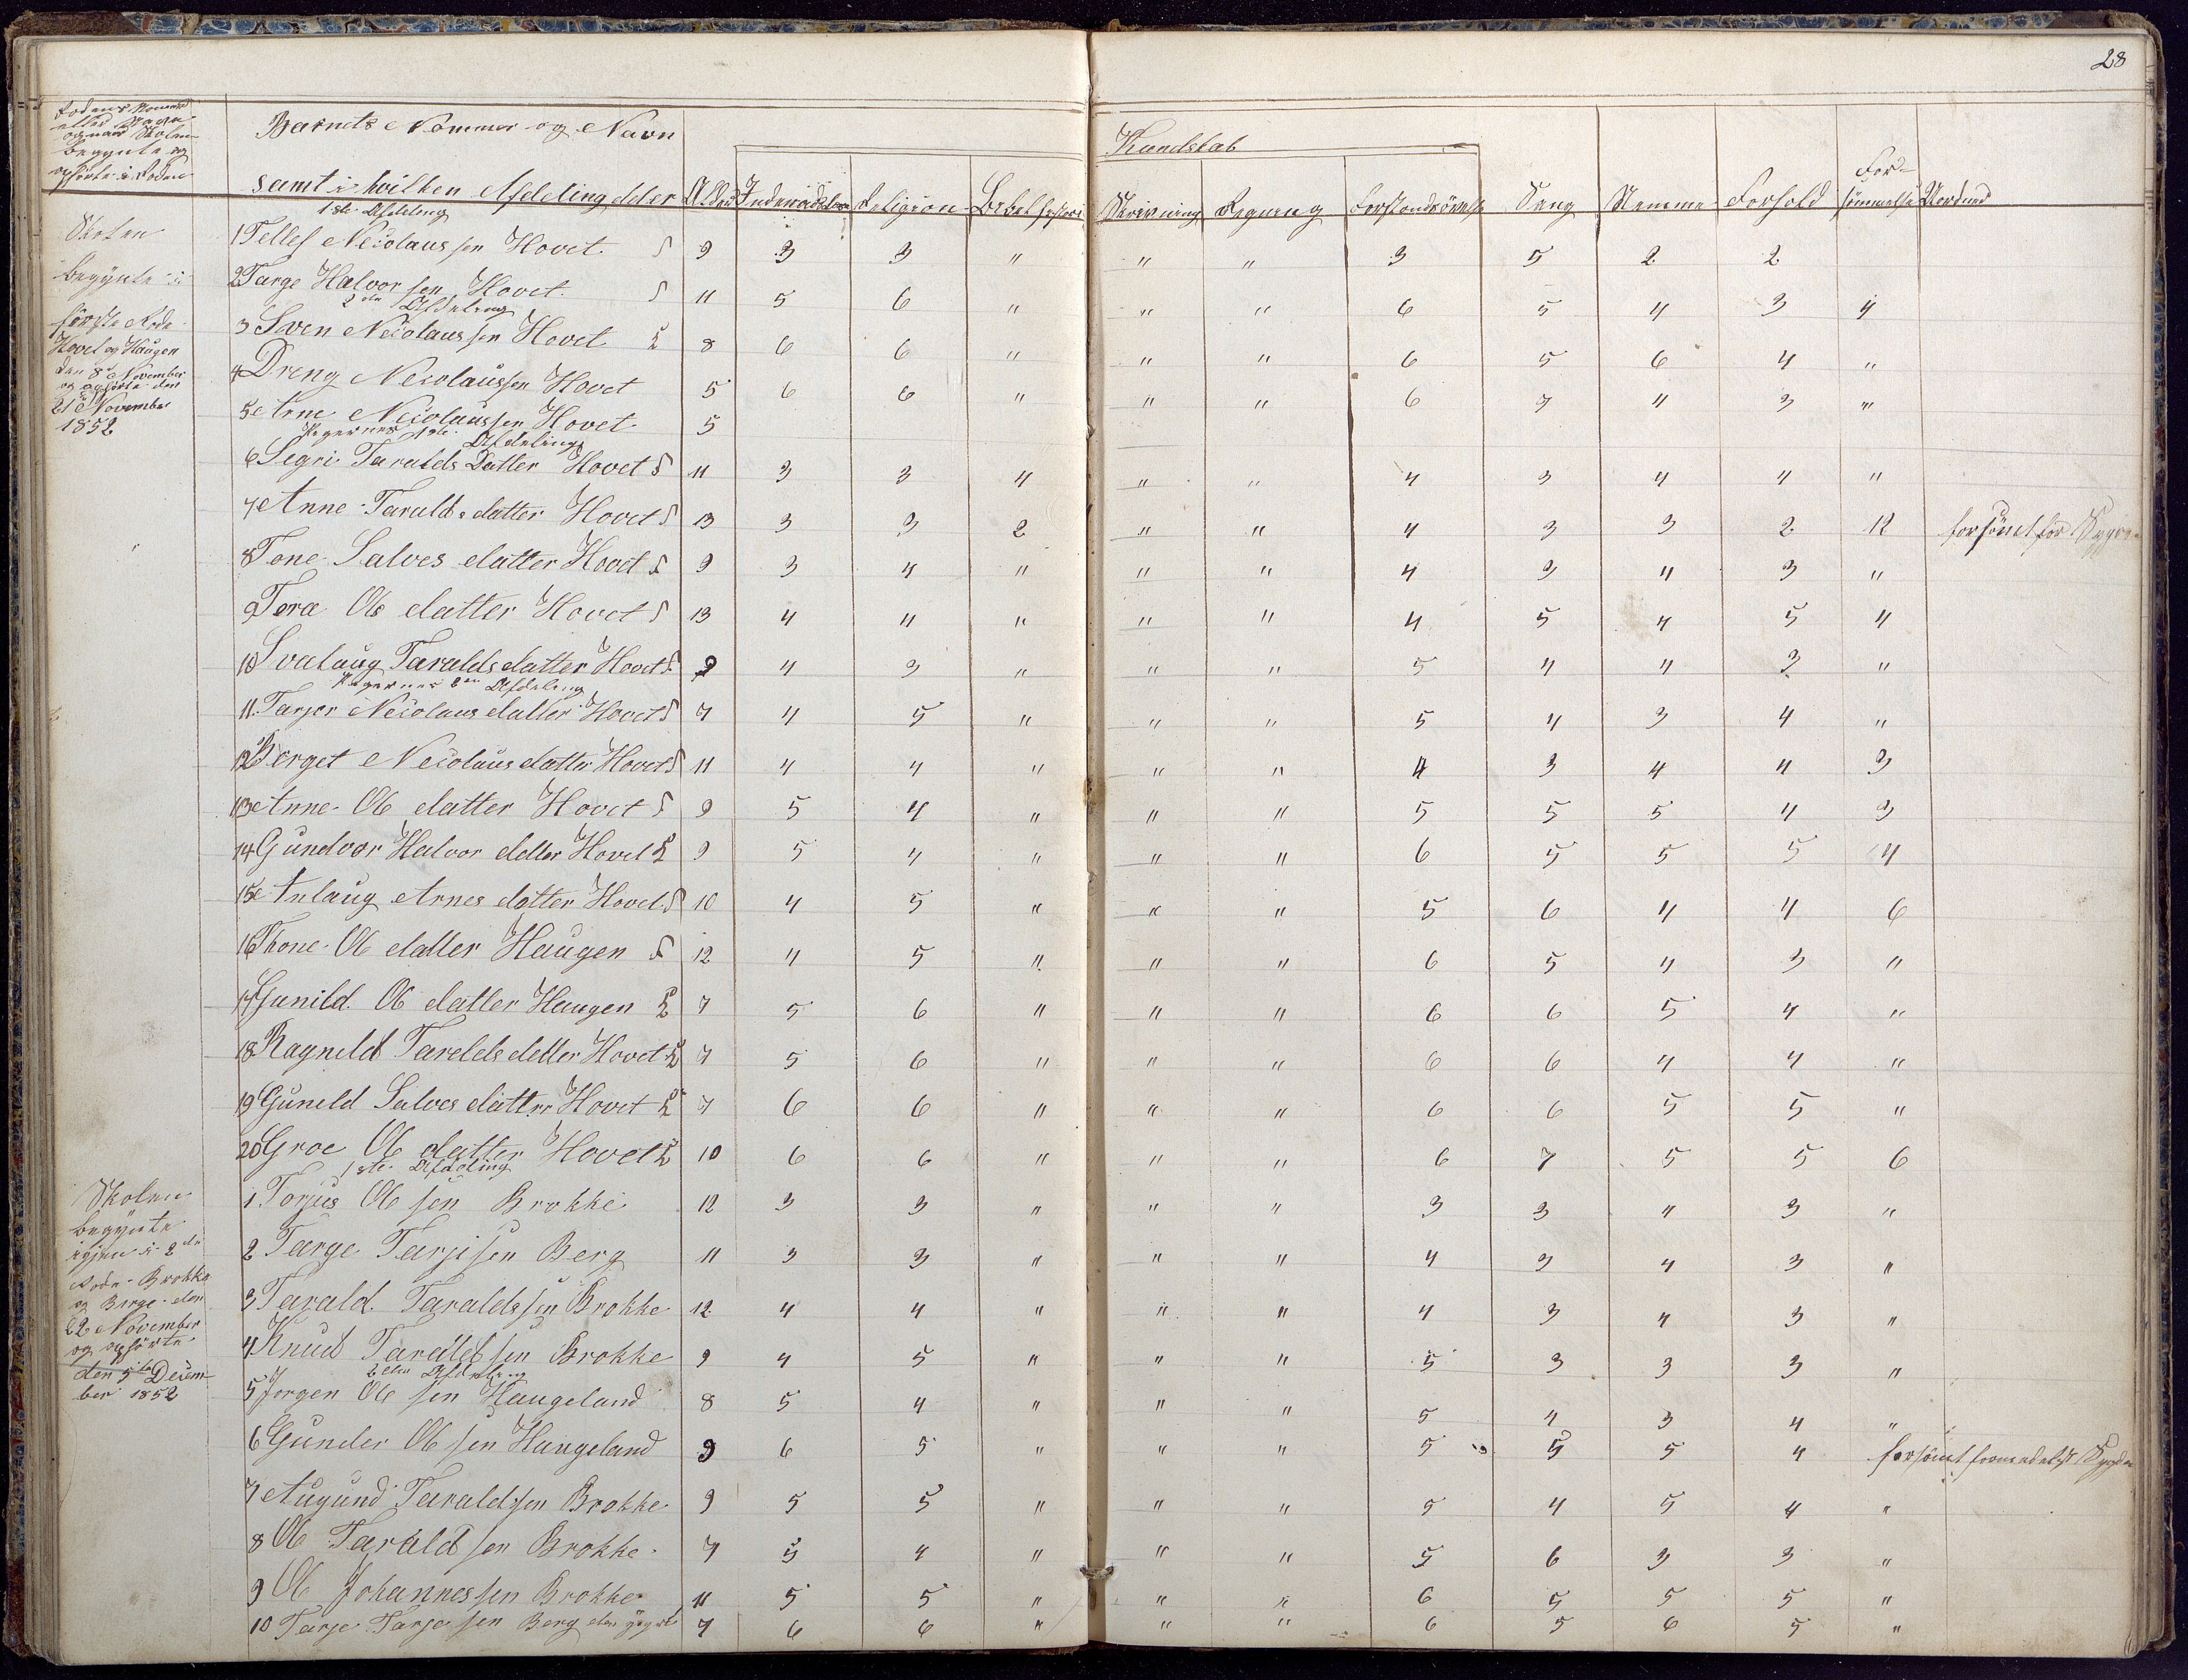 28
Rodens Nommer
eller Navn
og naar Skolen
begynte og
ophørte i Roden
Barnets Nommer og Navn
samt i hvilken Afdeling det er
Alder
Indenadslæs
Religion
Bibelhistori
Kundskab
Skrivning
Regning
Forstandsöv
Sang
Nemme
Forhold
For=
sömmelse
1ste Afdeling
Skolen
begÿnte i
förste Rode
Hovet og Haugen
den 8de November
og ophörte den
21 November
1852
1 Tellef Neiolaussen Hovet S 9 3 3 " " " 3 5 2 2
2 Targe Halvorsen Hovet S 11 5 6 " " " 6 5 4 3 4
2den Afdeling
3 Sven Neiolaussen Hovet L 8 6 6 " " " 6 5 6 4 "
4 Dreng Neiolaussen Hovet 5 6 6 " " " 6 7 4 3 "
5 Arne Neiolaussen Hovet 5
Pigernes 1ste Afdeling
6 Segri Taralds Datter Hovet S 11 3 3 4 " " 4 3 4 4 "
7 Anne Taralds datter Hovet S 13 3 3 2 " " 4 3 3 2 12 forsömt for
8 Tone Salves datter Hovet S 9 3 4 " " " 4 3 4 3 "
9 Tora Ole datter Hovet S 13 4 4 " " " 4 5 4 5 4
10 Svalaug Taralds datter Hovet S 9 4 3 " " " 5 4 4 3 "
Pigernes 2den Afdeling
11 Tarjer Neiolaus datter Hovet S 7 4 5 " " " 5 4 3 4 "
12 Berget Neiolaus datter Hovet S 11 4 4 " " " 4 3 4 4 3
13 Anne Ole datter Hovet S 9 5 4 " " " 5 5 5 4 3
14 Gundvor Halvor datter Hovet L 9 5 4 " " " 6 5 5 5 4
15 Anlaug Arnes datter Hovet S 10 4 5 " " " 5 6 4 4 6
16 Thone Ole datter Haugen S 12 4 5 " " " 6 5 4 3 "
17 Gunild Ole datter Haugen L 7 5 6 " " " 6 6 5 4 "
18 Ragnild Taralds datter Hovet L 7 5 6 " " " 6 6 4 4 "
19 Guneld Salves datter Hovet L 7 6 6 " " " 6 6 5 5 "
20 Groe Ole datter Hovet L 10 6 6 " " " 6 7 5 5 6
1ste Afdeling
Skolen
begÿnte
igjen i 2de
Rode Brokke
og Berge den
22 November
og ophörte
den 5te Decem
ber 1852
1 Torjus Ole sen Brokke 12 3 3 " " " 3 3 4 3 "
2 Targe Tarjisen Berg 11 3 3 " " " 4 3 4 3 "
3 Tarald Taraldssen Brokke 12 4 4 " " " 4 3 4 3 "
4 Knud Taraldsen Brokke 9 4 5 " " " 5 3 3 3 "
2den Afdeling
5 Jorgen Ole sen Haugeland 8 5 4 " " " 5 4 3 4 "
6 Gunder Ole sen Haugeland 9 6 5 " " " 5 5 5 4 forsömt formedelst
7 Augund Taraldsen Brokke 9 5 5 " " " 5 4 5 4 "
8 Ole Taraldsen Brokke 7 5 4 " " " 5 6 3 3 "
9 Ole Johannessen Brokke 11 5 5 " " " 6 5 5 5 "
10 Tarje Tarjesen Berg den 7 6 6 " " " 6 5 6 5 "